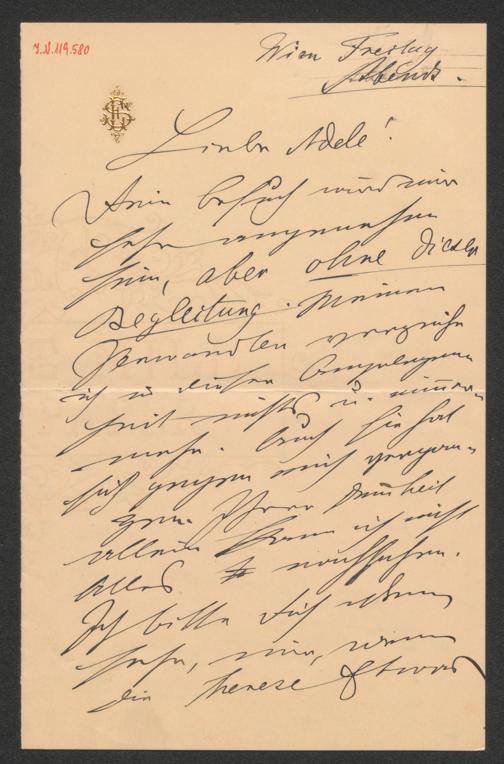 J.N. 119.580
Wien Freitag
Abends.
Liebe Adele!
Dein Besuch wird mir
sehr angenehm
sein, aber ohne dieser
Begleitung. Meinen
Verwandten verzeihe
ich in dieser Angelegen-
heit nichts u. nimmer-
mehr. Auch sie hat
sich gegen mich vergan-
gen. Ihrer Dumheit
allein kann ich nicht
alles nachsehen.
Ich bitte Dich
sehr, mir, wenn
die Therese Etwas